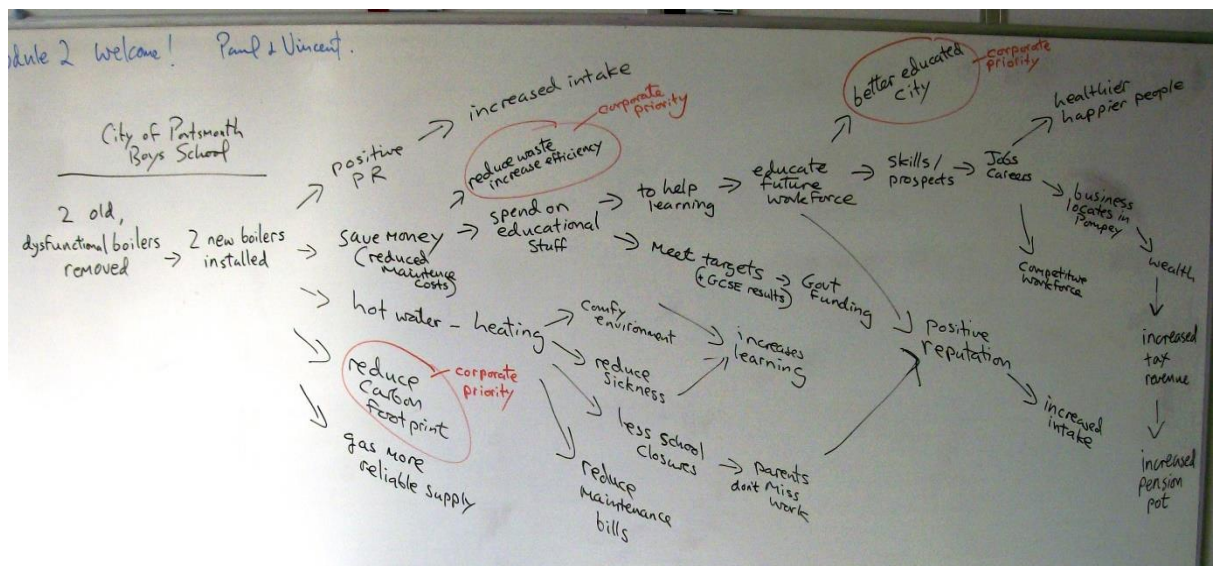 odule 2 Welcome! Paul & Vincent.
City of Portsmouth
Boys School
2 old,
dysfunctional boilers
removed
2 new boilers
installed
positive
PR
increased intake
save money
(reduced
maintence
costs)
reduce waste
increase efficiency
corporate
priority
spend on
educational
stuff
to help
learning
educate
future
workforce
better educated
city
corporate
priority
skills/
prospects
Jobs
Careers
healthier
happier people
business
locates in
Pompey
competitive
workforce
wealth
increased
tax
revenue
increased
pension
pot
Meet targets
(+GCSE results)
Govt
funding
hot water - heating
comfy
environment
reduce
sickness
increases
learning
less school
closures
parents
don't miss
work
reduce
maintenance
bills
positive
reputation
increased
intake
reduce
carbon
footprint
corporate
priority
gas more
reliable supply